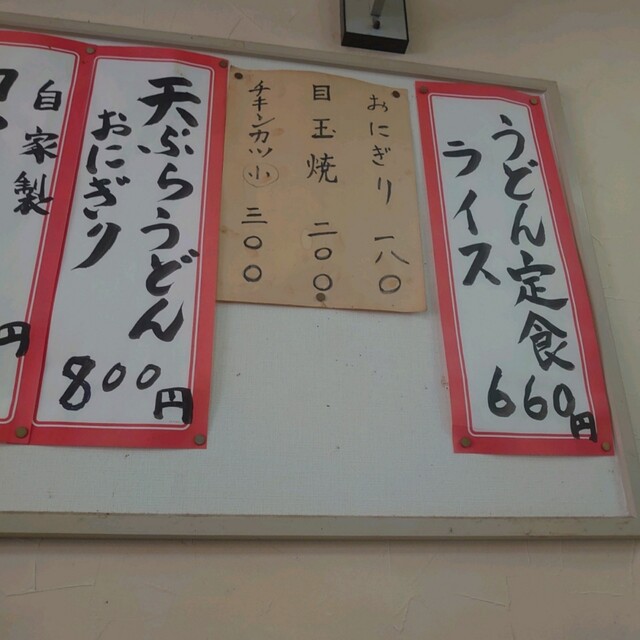 うどん定食
ライス
660円
おにぎり 一八〇
目玉焼 二〇〇
チキンカツ小 三〇〇
天ぷらうどん
おにぎり
800円
自家製
円